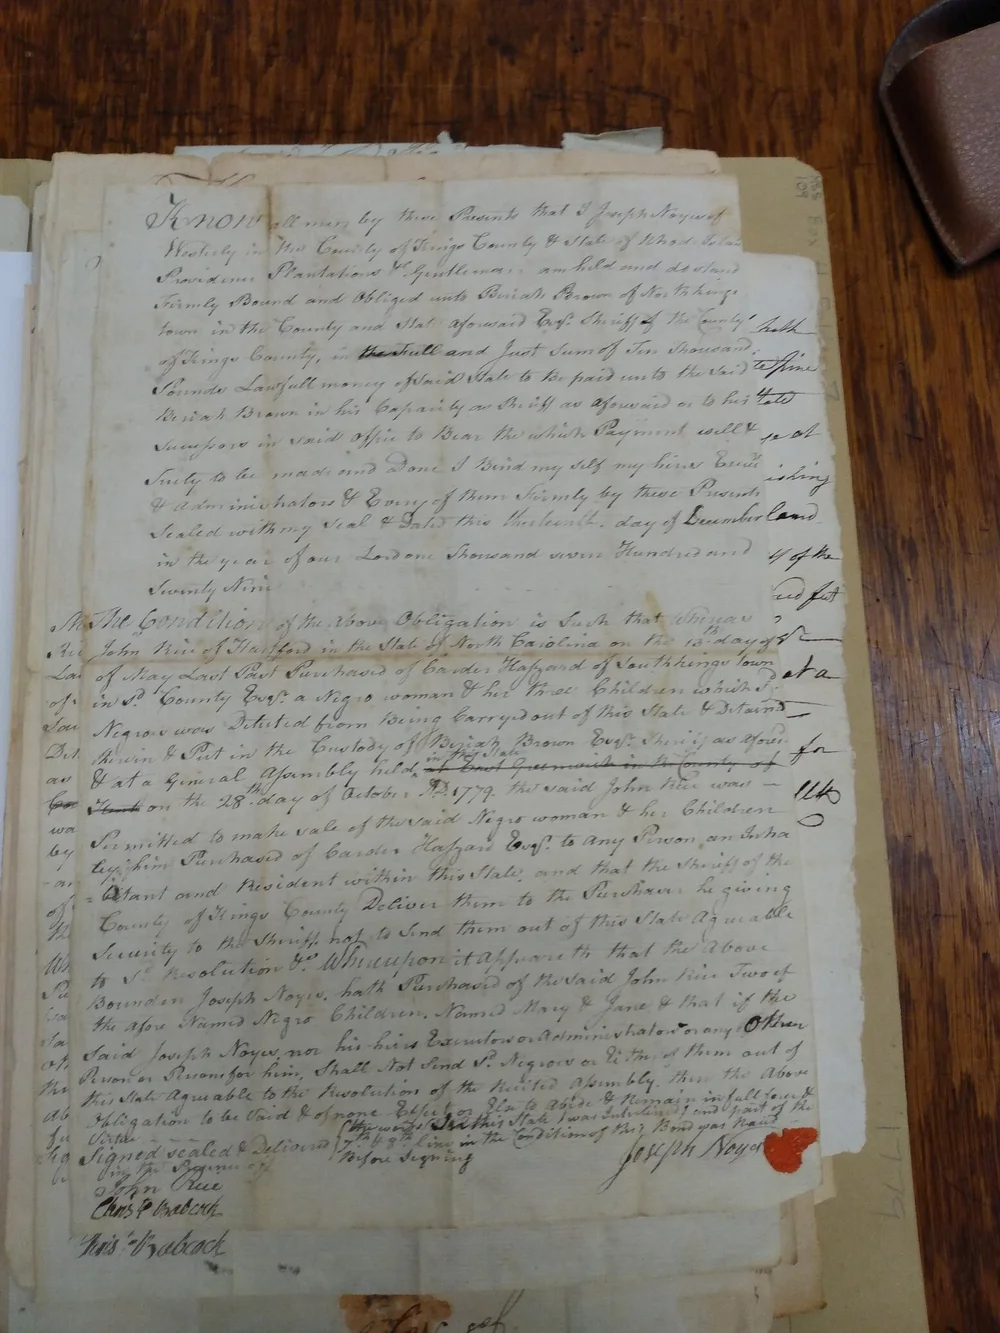 Know all men by these Presents that I Joseph Noyes of
Westerly in the County of Kings County & State of Rhode Island
Providence Plantations &c Gentleman am held and do stand
Firmly Bound and Obliged unto Beriah Brown of North kings
town in the County and State aforesaid Esqr. Sheriff of the County
of Kings County, in the full and Just Sum of Ten Thousand
Pounds Lawfull money of said State to be paid unto the Said
Beriah Brown in his Capacity as Sheriff as aforesaid or to his
Successors in said Office to Bear the which Payment well &
Surly to be made and Done I Bind my self my heirs
& administrators & Every of them Firmly by these Presents
Sealed with my Seal & Dated this thirteenth day of December
in the year of our Lord one Thousand seven Hundred and
Seventy Nine
The Condition of the above Obligation is Such that Whereas
John Rice of Hartford in the State of North Carolina on the 13th day of
of May Last Past Purchased of Carder Hafzard of Southkings town
in Sd. County Esqr. a Negro woman & her three Children which Sd.
Negros was Detected from Being Carryed out of this State & Detaind
therin & Put in the Custody of Beriah Brown Esqr. Sheriff as afores
& at a General Assembly held in this State at East Greenwich in the County of
Kent on the 28th day of October AD. 1779. the said John Rice was
Permitted to make sale of the said Negro woman & her Children
by him Purchased of Carder Hafzard Esqr. to any Person an Inha
=bitant and Resident within this State, and that the Sheriff of the
County of Kings County Deliver them to the Purchaser he giving
Security to the Sheriff not to Send them out of this State Agreable
to Sd. Resolution &c. Whereupon it Appeareth that the Above
Bounden Joseph Noyes, hath Purchased of the Said John Rice Two of
the afore Named Negro Children. Named Mary & Jane & that if the
Said Joseph Noyes, nor his heirs Executors or Administrators or any Other
Person or Persons for him, Shall Not Send Sd. Negros or Either of them out of
this State Agreable to the Resolution of the Recited Assembly. then the Above
Obligation to be Void & of none Effect or Else to Abide & Remain in full force &
Virtue
the words In this State was Interlined and part of the
7th & 8th line in the Condition of this Bond was
Before Signing
Signed sealed & Delivered
in the Presence of
Joseph Noyes
John Rice
Christo Babcock
Christo Babcock
hath
at
land
of the
at a
for